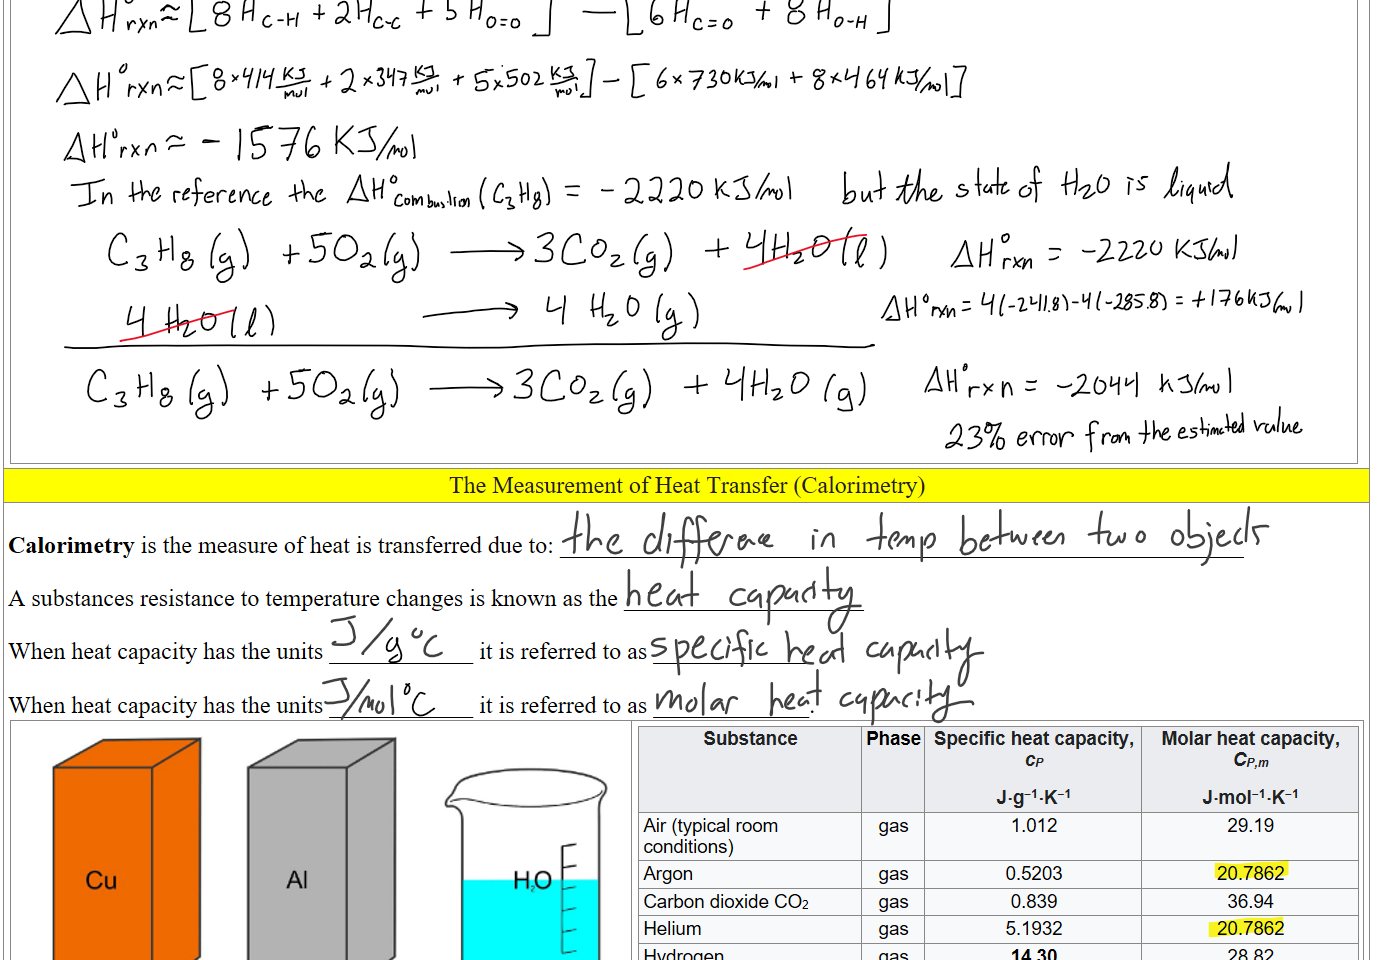 ΔH°rxn≈[8H C-H + 2H C-C + 5H O=O] - [6H C=O + 8H O-H]
ΔH°rxn≈[8×414 KJ/mol + 2×347 KJ/mol + 5×502 KJ/mol] - [6×730KJ/mol + 8×464KJ/mol]
ΔH°rxn ≈ - 1576 KJ/mol
In the reference the ΔH°combustion (C₃H₈) = - 2220 KJ/mol but the state of H₂O is liquid
C₃H₈(g) + 5O₂(g) → 3CO₂(g) + 4H₂O(l) ΔH°rxn = -2220 KJ/mol
4 H₂O(l) → 4 H₂O(g) ΔH°rxn = 4(-241.8)-4(-285.8) = +176KJ/mol
C₃H₈(g) + 5O₂(g) → 3CO₂(g) + 4H₂O(g) ΔH°rxn = -2044 KJ/mol
23% error from the estimated value
The Measurement of Heat Transfer (Calorimetry)
Calorimetry is the measure of heat is transferred due to: the differece in temp between two objects
A substances resistance to temperature changes is known as the heat capacity
When heat capacity has the units J/g°C it is referred to as specific heat capacity
When heat capacity has the units J/mol°C it is referred to as molar heat capacity
Cu
Al
H₂O
Substance Phase Specific heat capacity, Molar heat capacity,
cP CP,m
J·g⁻¹·K⁻¹ J·mol⁻¹·K⁻¹
Air (typical room gas 1.012 29.19
conditions)
Argon gas 0.5203 20.7862
Carbon dioxide CO₂ gas 0.839 36.94
Helium gas 5.1932 20.7862
Hydrogen gas 14.30 28.82